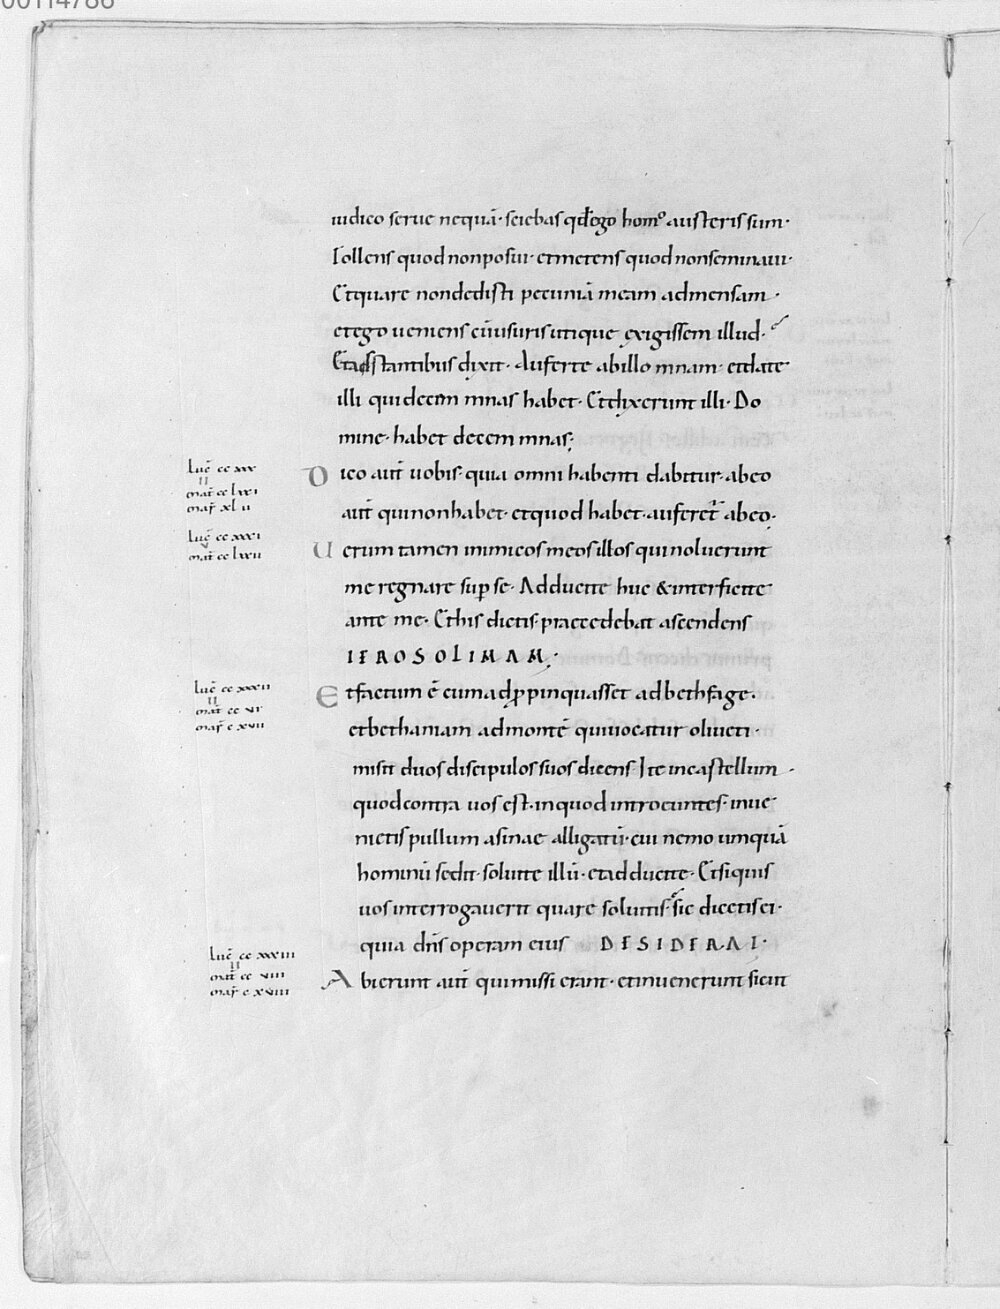 00114786
iudico serue nequā· sciebas qđ ego homo austeris sum·
Tollens quod non posui· et metens quod non seminaui·
Et quare non dedisti pecuniā meam ad mensam·
et ego ueniens cū usuris utique exigissem illud·
Et adstantibus dixit· Auferte ab illo mnam· et date
illi qui decem mnas habet· Et dixerunt illi· Do
mine· habet decem mnas;
Dico aut̄ uobis· quia omni habenti dabitur· ab eo
aut̄ qui non habet· et quod habet· auferet̄ ab eo·
Uerum tamen inimicos meos illos qui noluerunt
me regnare suꝑ se· Adducite huc & interficite
ante me· Et his dictis· praecedebat ascendens
IEROSOLIMAM;
Et factum ē cum adꝓpinquasset ad bethfage·
et bethaniam ad montē qui uocatur oliueti·
misit duos discipulos suos dicens· Ite in castellum·
quod contra uos est· in quod introeuntes· inue
nietis pullum asinae alligatū· cui nemo umquā
hominū sedit· soluite illū· et adducite· Et si quis
uos interrogauerit quare soluitis· sic dicetis ei·
quia dn̄s operam eius DESIDERAT·
Abierunt aut̄ qui missi erant· et inuenerunt sicut
Luc̄ cc xxx
II
mat̄ cc lxxi
mar̄ xl ii
Luc̄ cc xxxi
v
mat̄ cc lxxii
Luc̄ cc xxxii
II
mat̄ cc vi
mar̄ c xvii
Luc̄ cc xxxiii
II
mat̄ cc viii
mar̄ c xviii